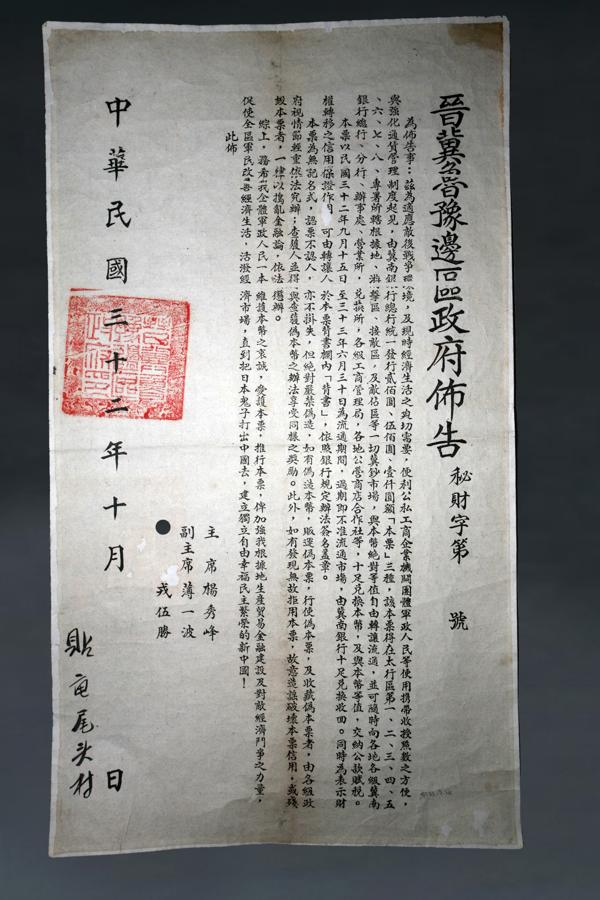 晉冀魯豫邊區政府佈告 秘財字第 號
為佈告事：茲為適應敵後戰爭環境，及現時經濟生活之爽切需要，便利公私工商企業機關團體軍政人民等使用携帶收授照數之方便，
與強化通貨管理制度起見，由冀南銀行總行統一發行貳佰圓、伍佰圓、壹仟圓額「本票」三種，該本票得在太行區第一、二、三、四、五
、六、七、八、專署所轄根據地、游擊區、接敵區、及敵佔區等一切冀鈔市場，與本幣絕對等值自由轉讓流通，並可隨時向各地各級冀南
銀行總行、分行、辦事處、營業所，兌換所，各級工商管理局，各地公營商店合作社等，十足兌換本幣，及與本幣等值，交納公款賦稅。
本票以民國三十二年九月十五日至三十三年六月三十日為流通期間，過期即不准流通市場，由冀南銀行十足兌換收回。同時為表示財
權轉移之信用保證作用，可由轉讓人於本票背書欄內「背書」，依照銀行規定辦法簽名蓋章。
本票為無記名式，認票不認人，亦不掛失，但絕對嚴禁偽造，如有偽造本幣，販運偽本票，行使偽本票，及收藏偽本票者，由各級政
府視情節輕重依法究辦；查獲人並得與查獲偽本幣之辦法享受同樣之獎勵。此外，如有發現無故拒用本票，故意造謠破壞本票信用，或殘
毀本票者，一律以擾亂金融論，依法懲辦。
綜上，務希我全體軍政人民一本維護本幣之衷誠，愛護本票，推行本票，俾加強我根據地生產貿易金融建設及對敵經濟鬥爭之力量，
促使全區軍民改善經濟生活，活潑經濟市場，直到把日本鬼子打出中國去，建立獨立自由幸福民主繁榮的新中國！
此佈
主席 楊秀峰
副主席 薄一波
戎伍勝
中華民國三十二年十月 日
貼 尾头村